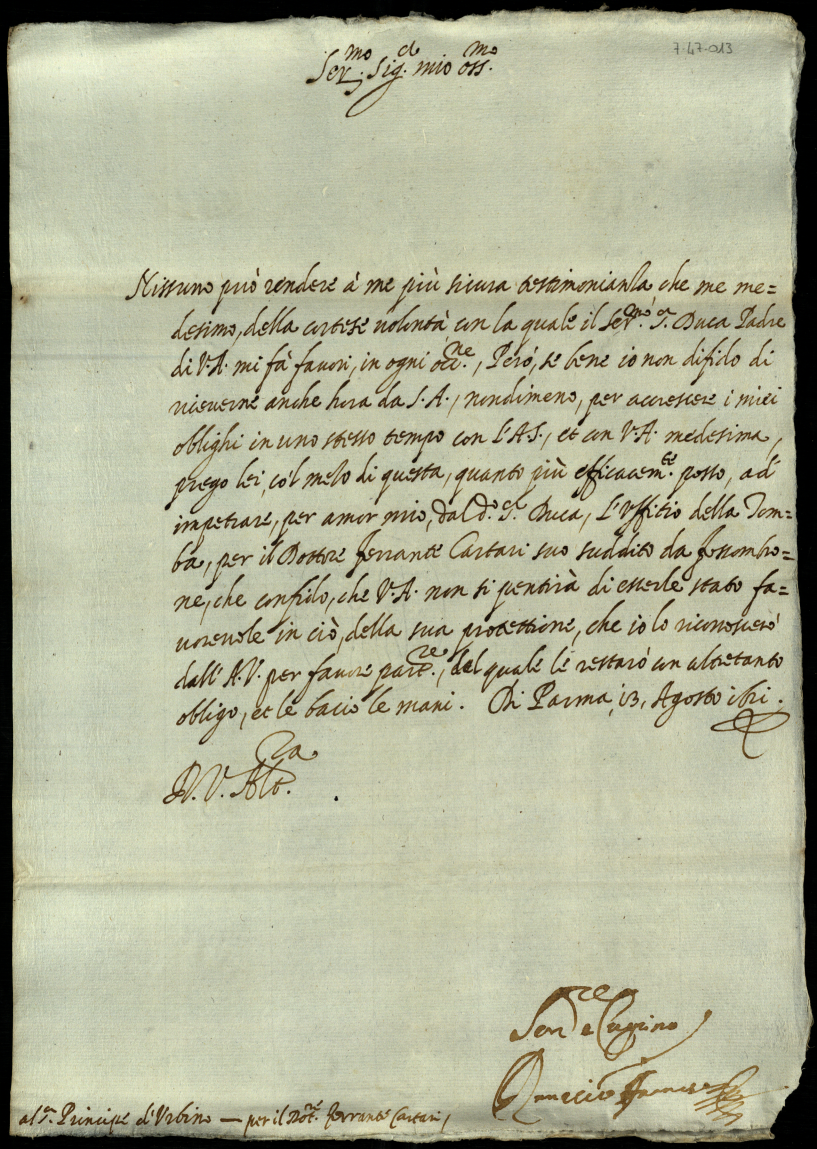 7-47-013
Ser.mo Sig.re mio oss.mo
Nissuno può rendere à me più sicura testimonianza che me me=
desimo, della cortese uolontà, con la quale il Ser.mo S.r Duca Padre
di V.A. mi fà fauori, in ogni occ.ne, Però, se bene io non difido di
riceuerne anche hora da S.A., nondimeno, per accrescere i miei
oblighi in uno stesso tempo con l'A.S., et con V.A. medesima,
prego lei, co'l mezo di questa, quanto più efficacem.te posso, ad'
impetrare, per amor mio, dal d.o S.r Duca, l'Uffitio della Tom=
ba, per il Dottore Ferrante Cartari suo suddito da Fossombro=
ne, che confido, che V.A. non si pentirà di esserle stato fa=
uoreuole in ciò, della sua protettione, che io lo riconoscerò
dall'A.V. per fauore part.re, del quale le restarò con altretanto
obligo, et le bacio le mani. Di Parma, 13, Agosto
D. V. Alt.za
Ser.re e Cugino
Ranuccio Farnese
al S.r Principe d'Urbino — per il Dot.re Ferrante Cartari,